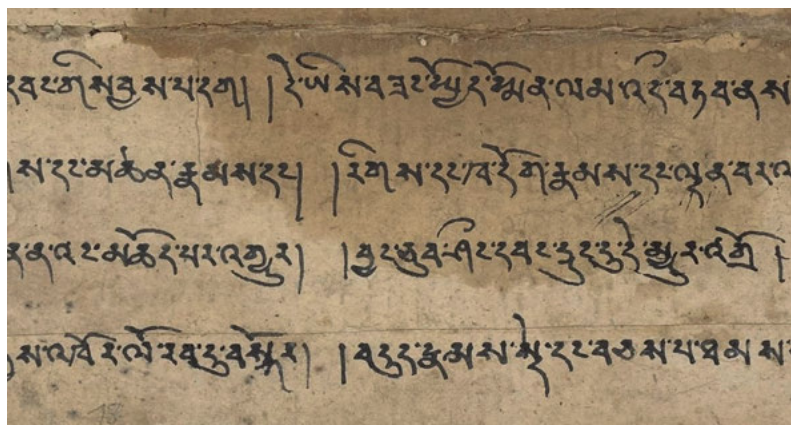 དབང་གིས་བྱས་པ་དག། །དེ་ཡིས་བཟང་སྤྱོད་སྨོན་ལམ་འདི་བཏབ་ནས
ས་དང་མཚན་རྣམས་དང་། །རིགས་དང་ཁ་དོག་རྣམས་དང་ལྡན་བར་
ན་འང་མཆོད་པར་འགྱུར། །བྱང་ཆུབ་ཤིང་དབང་དྲུང་དུ་དེ་མྱུར་འགྲོ །
ས་འཁོར་ལོ་རབ་དུ་བསྐོར། །བདུད་རྣམས་སྡེ་དང་བཅས་པ་ཐམས་